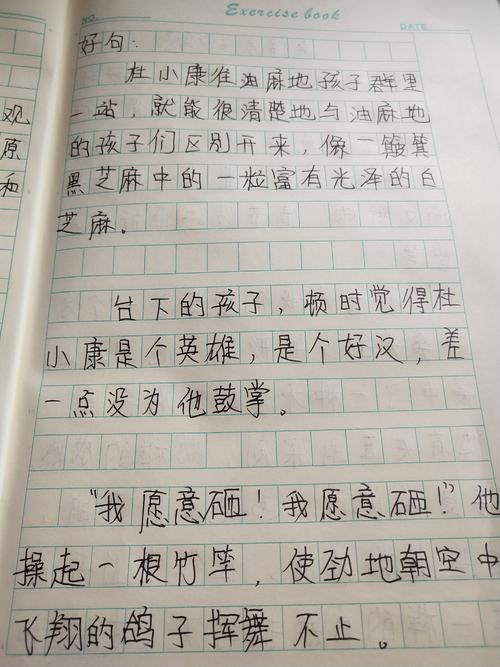 Exercise book
NO.
DATE
好句：
杜小康往油麻地孩子群里
一站，就能很清楚地与油麻地
的孩子们区别开来，像一簸箕
黑芝麻中的一粒富有光泽的白
芝麻。
台下的孩子，顿时觉得杜
小康是个英雄，是个好汉，差
一点没为他鼓掌。
“我愿意砸！我愿意砸！”他
操起一根竹竿，使劲地朝空中
飞翔的鸽子挥舞不止。
观
原
和